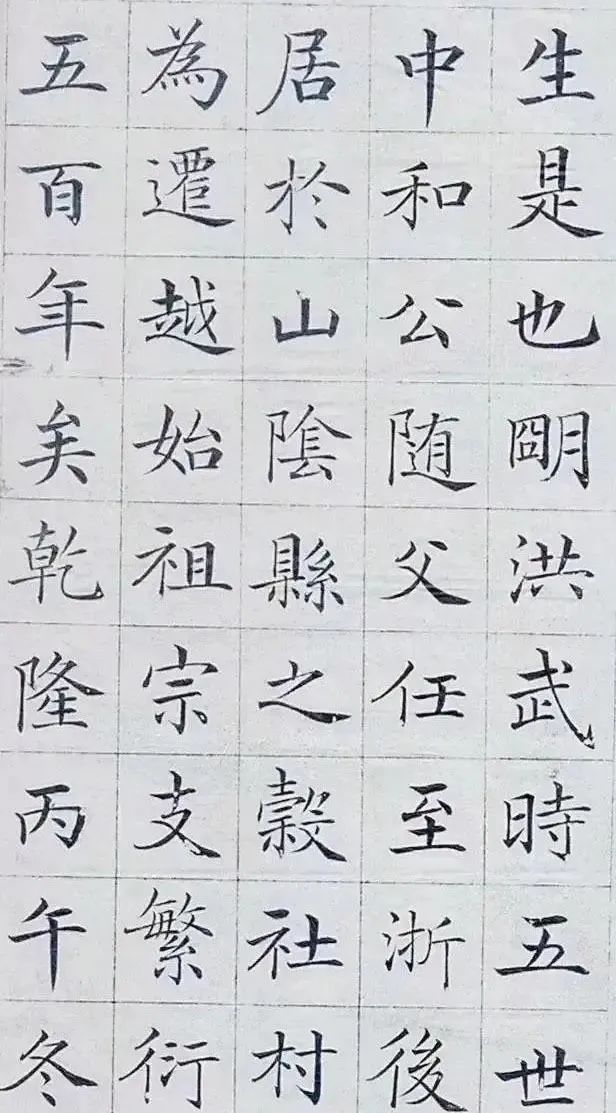 生是也朙洪武時五世
中和公随父任至浙後
居於山陰縣之穀社村
為遷越始祖宗支繁衍
五百年矣乾隆丙午冬